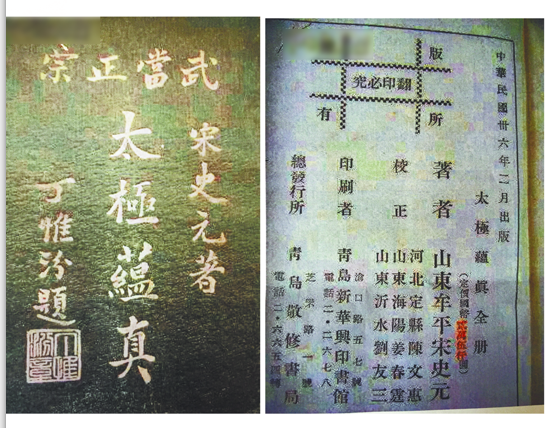 武當正宗
宋史元著
太極蘊真
丁惟汾題
中華民國卅六年二月出版
太極蘊眞全册
(定價國幣貳萬伍仟圓)
版
所
有
翻印必究
著者 山東牟平宋史元
校正 河北定縣陳文惠
山東海陽姜春霆
山東沂水劉友三
印刷者 青島新華興印書館
滄口路五七號
電話二・二六七八
總發行所 青島敬修書局
芝罘路一號